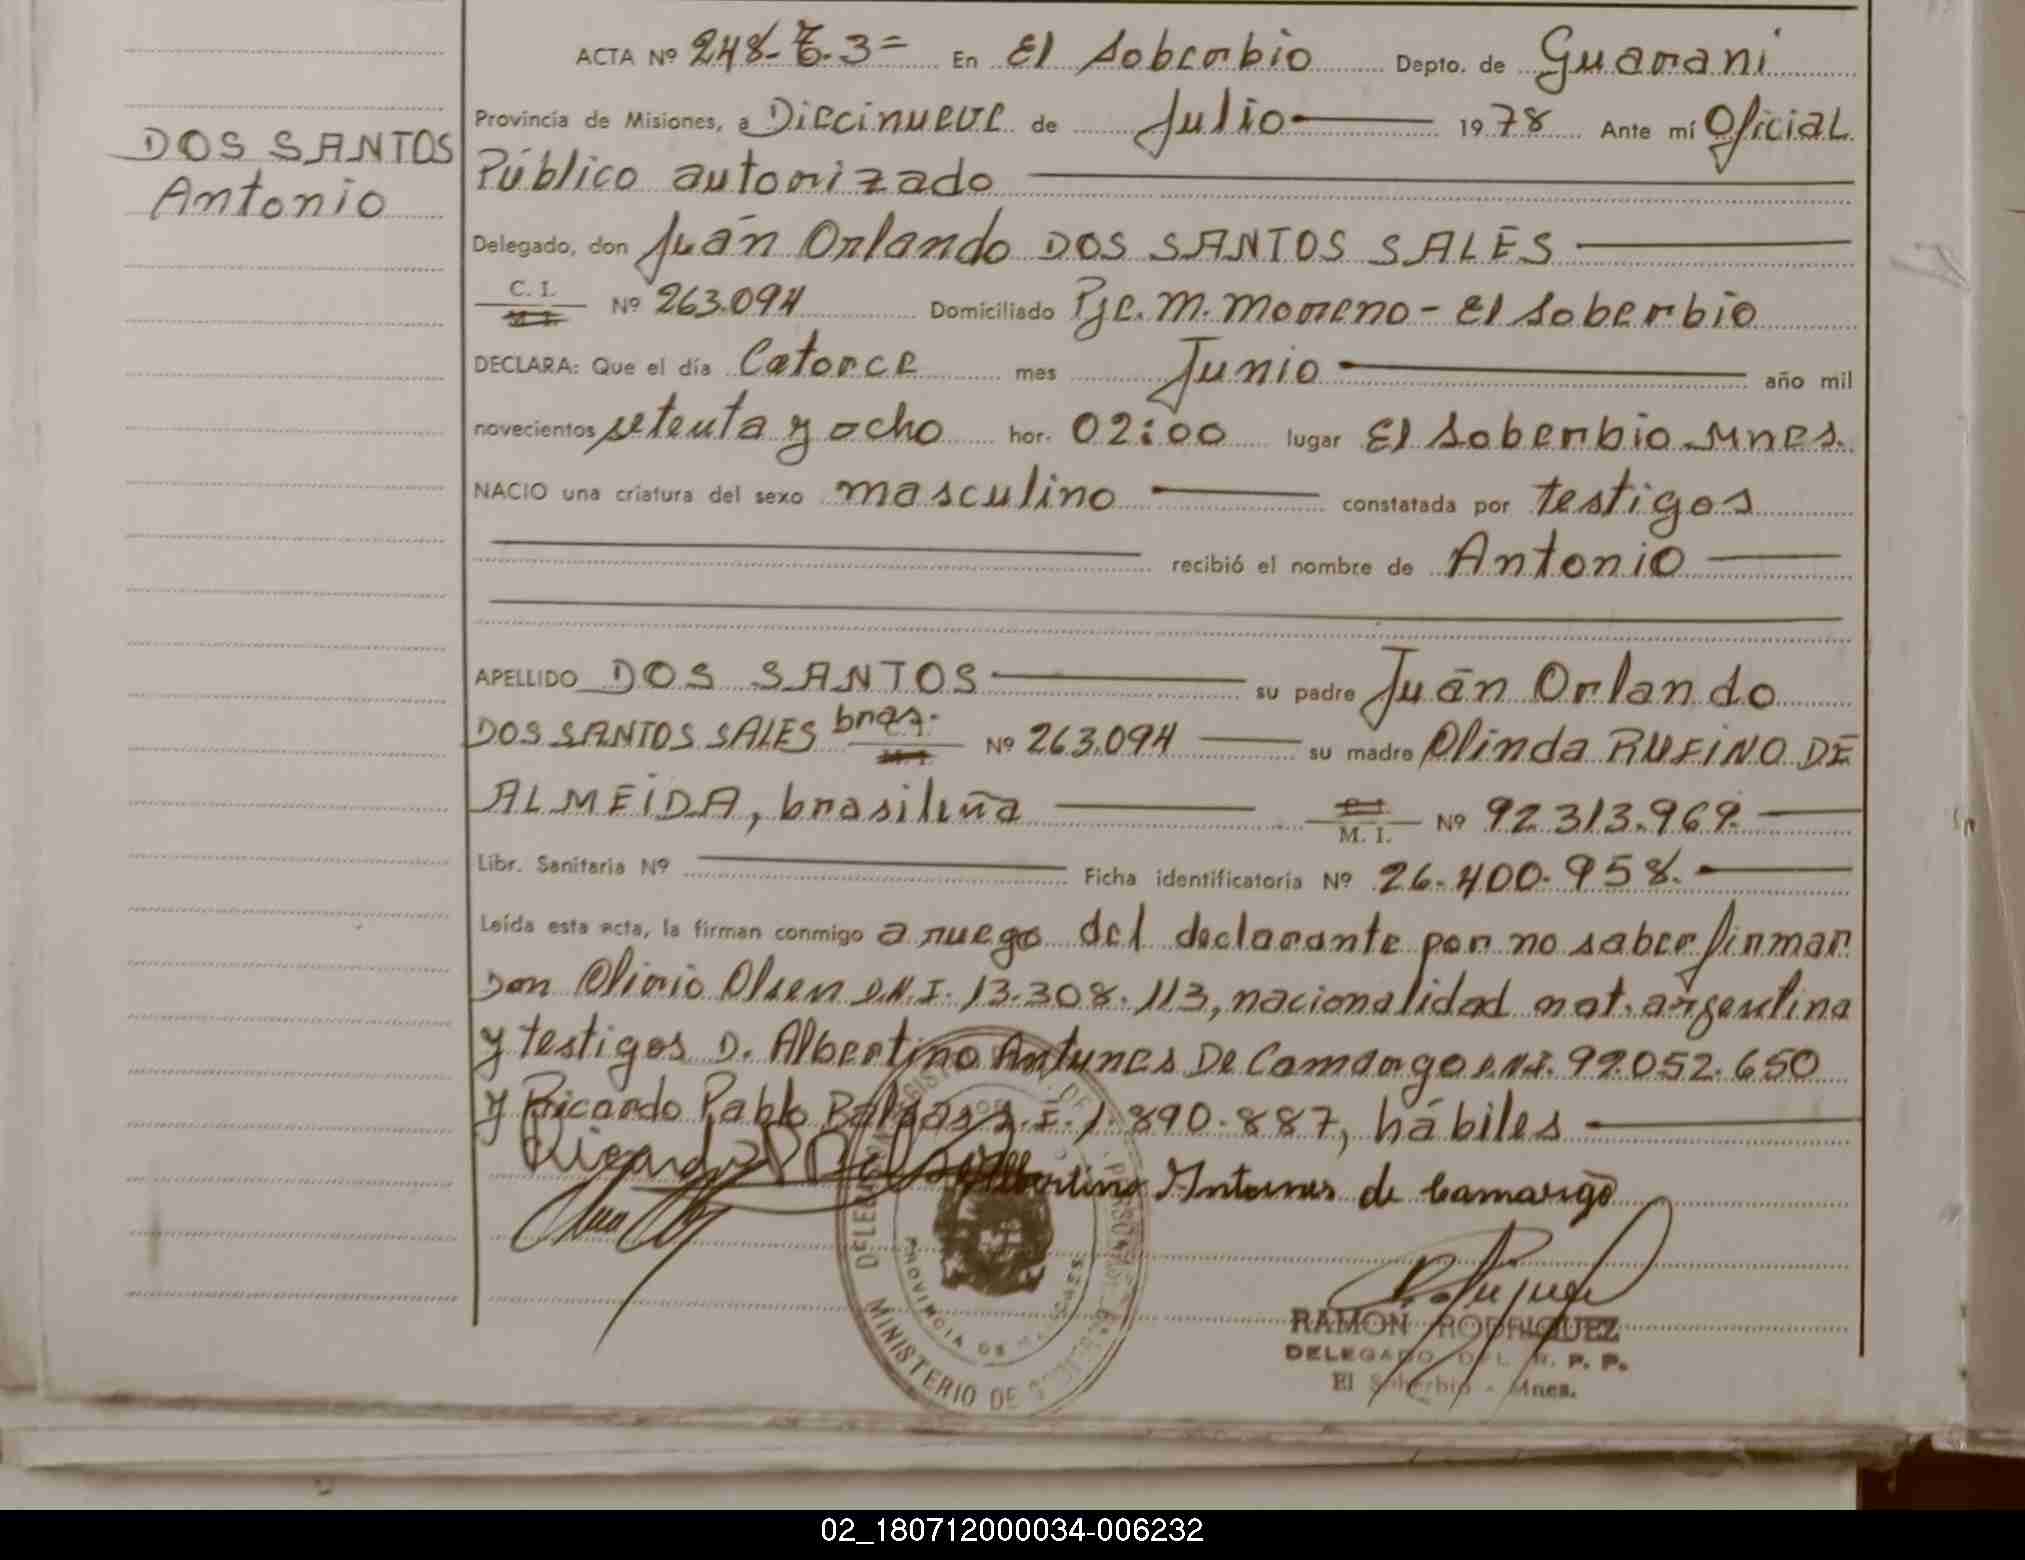 ACTA Nº 248-T.3= En El Soberbio Depto. de Guarani
Provincia de Misiones, a Diecinueve de Julio 1978 Ante mí Oficial
DOS SANTOS
Antonio
Público autorizado
Delegado, don Juán Orlando DOS SANTOS SALES
C. I. Nº 263.094 Domiciliado Pje. M. Moreno - El Soberbio
M. I.
DECLARA: Que el día Catorce mes Junio año mil
novecientos setenta y ocho hor. 02:00 lugar El Soberbio Mnes.
NACIO una criatura del sexo masculino constatada por testigos
recibió el nombre de Antonio
APELLIDO DOS SANTOS su padre Juán Orlando
DOS SANTOS SALES bras. M. I. Nº 263.094 su madre Olinda RUFINO DE
ALMEIDA, brasileña C. I. M. I. Nº 92.313.969.
Libr. Sanitaria Nº Ficha identificatoria Nº 26.400.958.
Leída esta acta, la firman conmigo a ruego del declarante por no saber firmar
Don Olirio Olsen D.N.I. 13.308.113, nacionalidad nat. argentina
y testigos D. Albertino Antunes De Camargo D.N.I. 92.052.650
y Ricardo Pablo 1.890.887, hábiles
Ricardo
Albertino Antunes de Camargo
RAMON RODRIGUEZ
DELEGADO DEL R. P. P.
El Soberbio - Mnes.
PROVINCIA DE MISIONES
MINISTERIO DE GOBIERNO
02_180712000034-006232